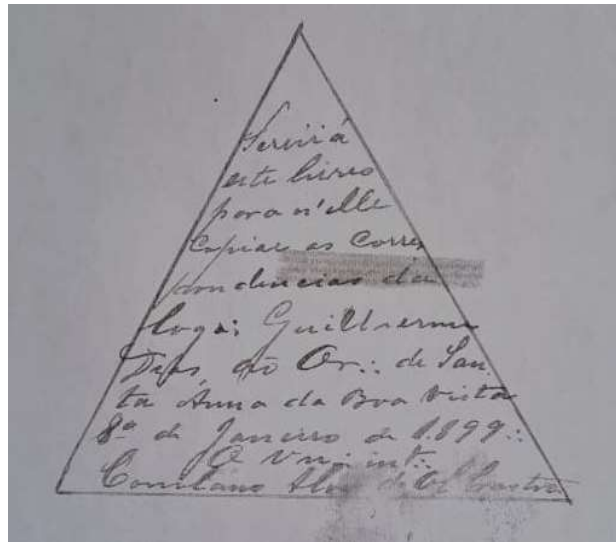 Servirá
este livro
para n'elle
Copiar as Corres
pondencias da
Loga: Guilherme
Dias, ao Or.: de San
ta Anna da Boa Vista
8ª de Janeiro de 1.899.:
O Vn.: int.:
de Castro